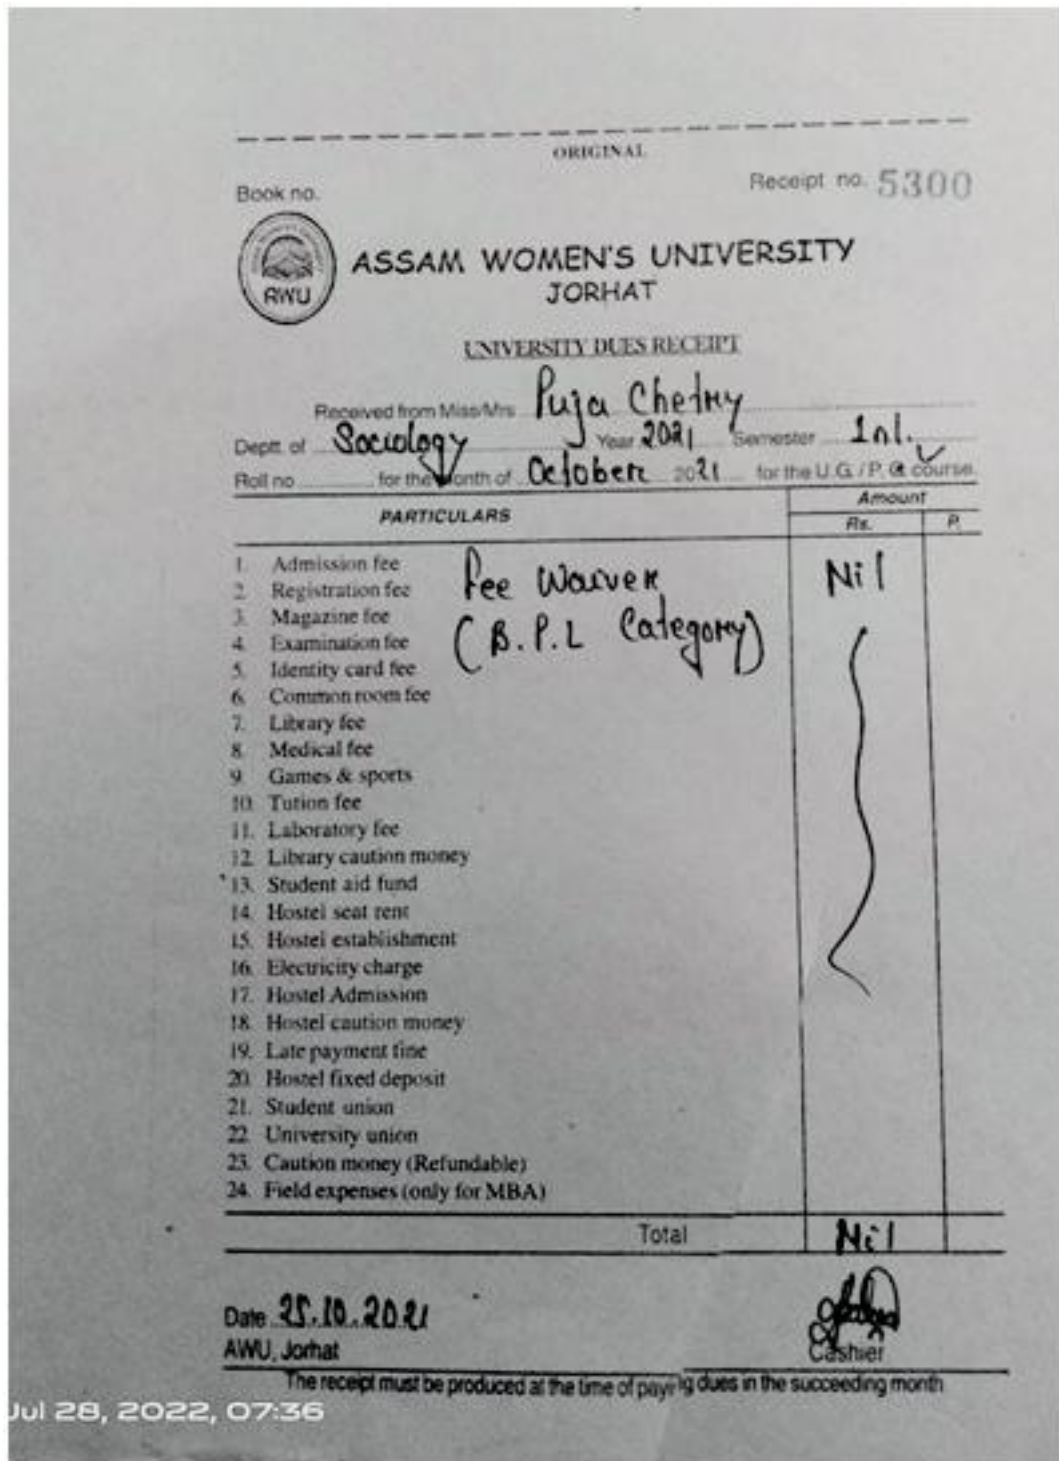 ORIGINAL
Book no.
Receipt no. 5300
AWU
ASSAM WOMEN'S UNIVERSITY
JORHAT
UNIVERSITY DUES RECEIPT
Received from Miss/Mrs Puja Chetry
Deptt. of Sociology Year 2021 Semester 1st.
Roll no for the Month of October 2021 for the U.G. / P.G course.
PARTICULARS Amount
Rs. P.
1. Admission fee Fee Waiver Nil
2. Registration fee
3. Magazine fee (B.P.L Category)
4. Examination fee
5. Identity card fee
6. Common room fee
7. Library fee
8. Medical fee
9. Games & sports
10. Tution fee
11. Laboratory fee
12. Library caution money
13. Student aid fund
14. Hostel seat rent
15. Hostel establishment
16. Electricity charge
17. Hostel Admission
18. Hostel caution money
19. Late payment fine
20. Hostel fixed deposit
21. Student union
22. University union
23. Caution money (Refundable)
24. Field expenses (only for MBA)
Total Nil
Date 25.10.2021
AWU, Jorhat
Cashier
The receipt must be produced at the time of paying dues in the succeeding month
Jul 28, 2022, 07:36